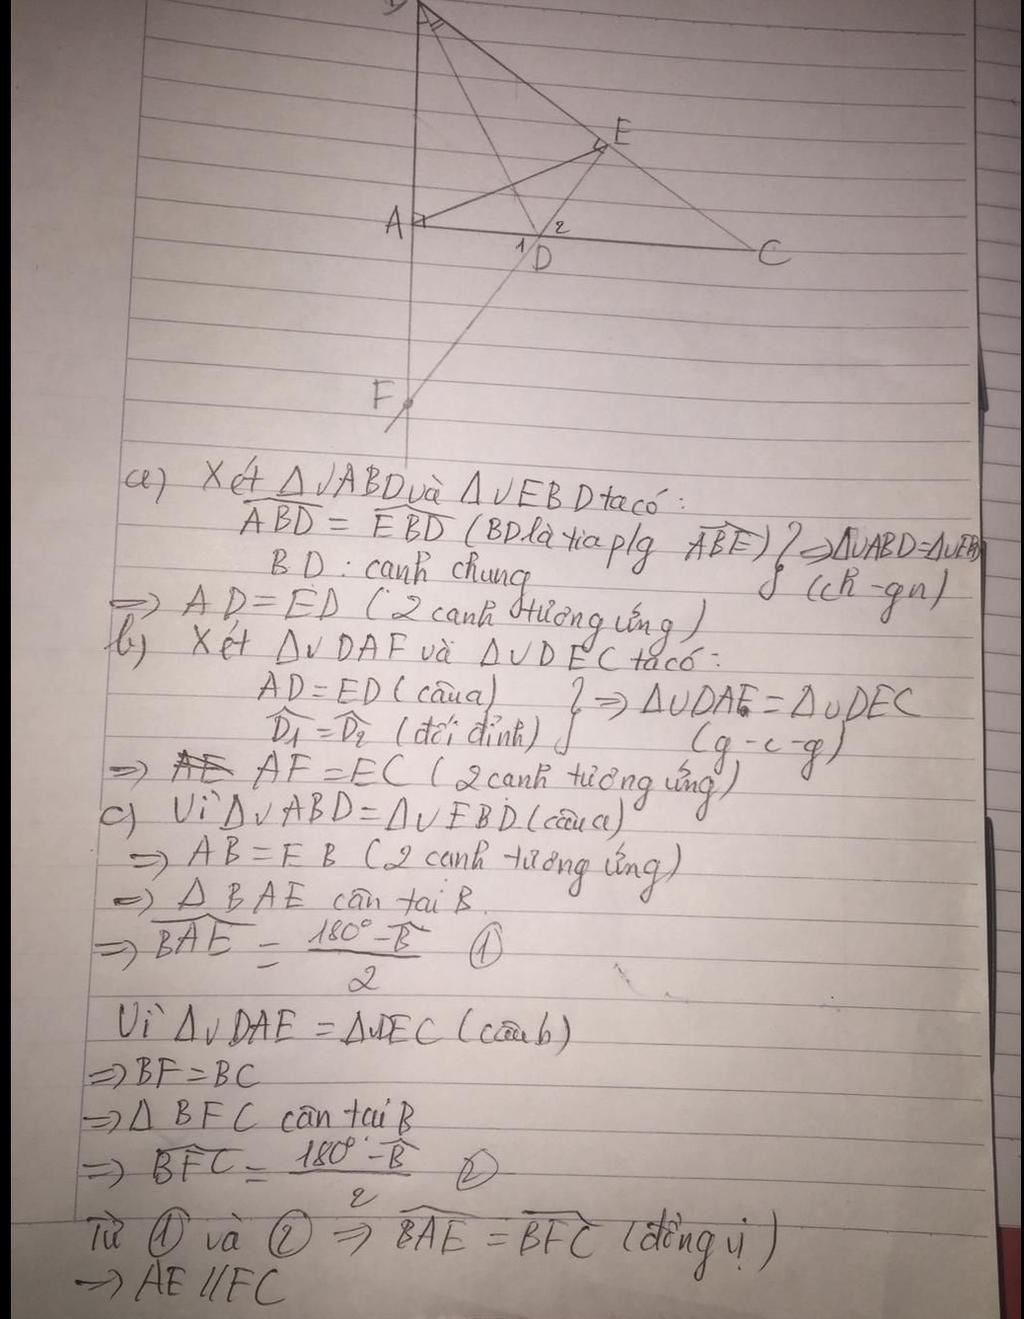 E
A
1
2
D
C
F
a) Xét ΔvABD và ΔvEBD ta có:
ABD = EBD (BD là tia p/g ABE) } => ΔvABD = ΔvEBD
BD: cạnh chung (ch - gn)
=> AD = ED (2 cạnh tương ứng)
b) Xét ΔvDAF và ΔvDEC ta có:
AD = ED (câu a) } => ΔvDAF = ΔvDEC
D1 = D2 (đối đỉnh) (g-c-g)
=> AE AF = EC (2 cạnh tương ứng)
c) Vì ΔvABD = ΔvEBD (câu a)
=> AB = EB (2 cạnh tương ứng)
=> Δ BAE cân tại B.
=> BAE = (180° - B)/2 ①
Vì ΔvDAE = ΔvDEC (câu b)
=> BF = BC
=> Δ BFC cân tại B
=> BFC = (180° - B)/2 ②
Từ ① và ② => BAE = BFC (đồng vị)
=> AE // FC